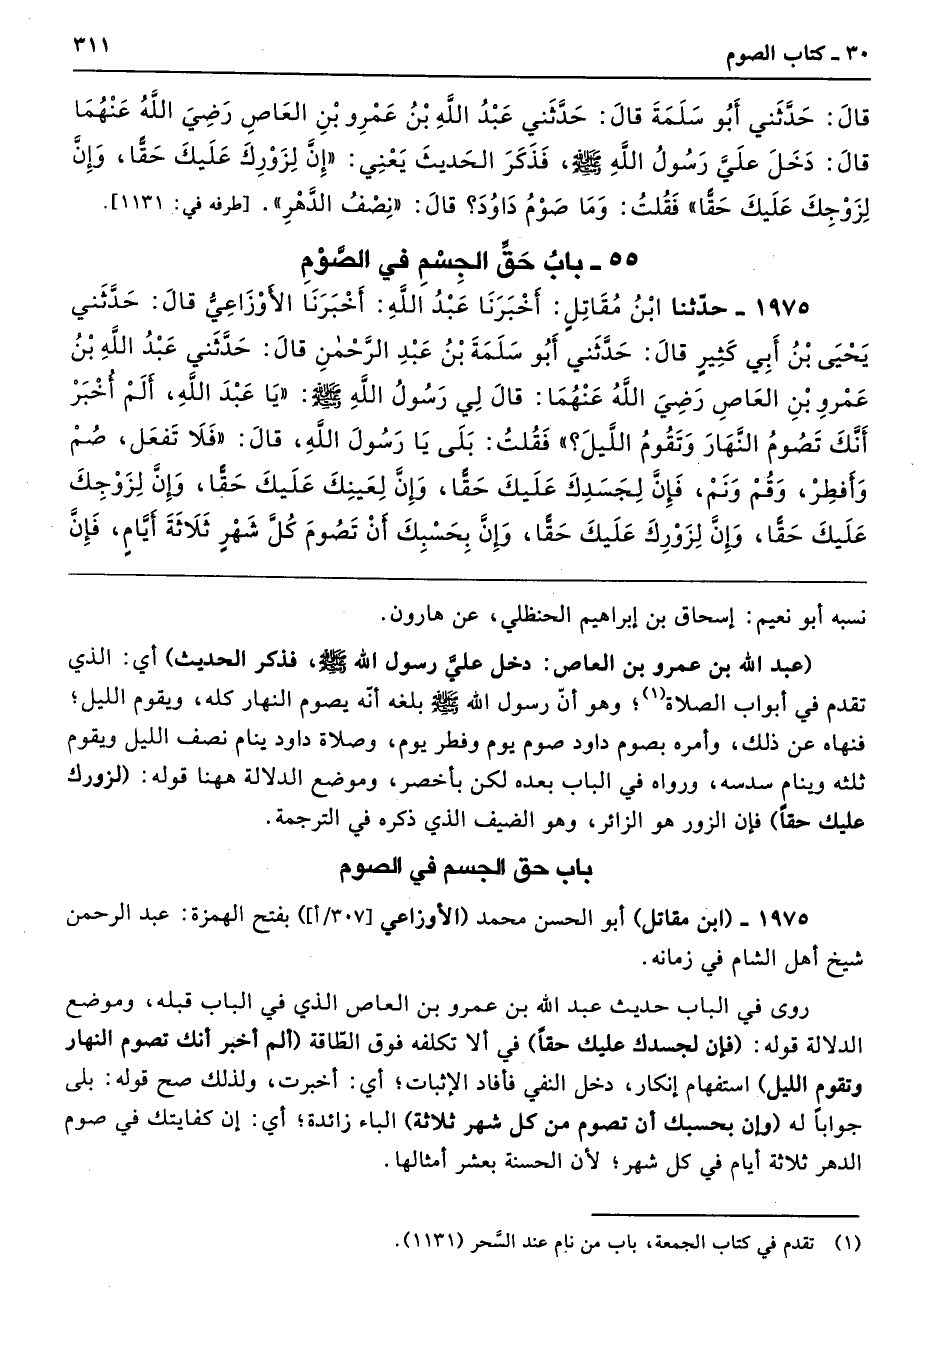 ٣٠ - كتاب الصوم
٣١١
قالَ: حَدَّثَني أَبُو سَلَمَةَ قالَ: حَدَّثَني عَبْدُ اللَّهِ بْنُ عَمْرِو بْنِ العَاصِ رَضِيَ اللَّهُ عَنْهُمَا
قالَ: دَخَلَ عَلَيَّ رَسُولُ اللَّهِ ﷺ، فَذَكَرَ الحَديثَ يَعْنِي: «إِنَّ لِزَوْرِكَ عَلَيكَ حَقًّا، وَإِنَّ
لِزَوْجِكَ عَلَيكَ حَقًّا» فَقُلتُ: وَمَا صَوْمُ دَاوُدَ؟ قالَ: «نِصْفُ الدَّهْرِ». [طرفه في: ١١٣١].
٥٥ - بابُ حَقِّ الجِسْمِ في الصَّوْمِ
١٩٧٥ - حدّثنا ابْنُ مُقَاتِلٍ: أَخْبَرَنَا عَبْدُ اللَّهِ: أَخْبَرَنَا الأَوْزَاعِيُّ قالَ: حَدَّثَني
يَحْيَى بْنُ أَبِي كَثِيرٍ قالَ: حَدَّثَني أَبُو سَلَمَةَ بْنُ عَبْدِ الرَّحْمٰنِ قالَ: حَدَّثَني عَبْدُ اللَّهِ بْنُ
عَمْرِو بْنِ العَاصِ رَضِيَ اللَّهُ عَنْهُمَا: قالَ لِي رَسُولُ اللَّهِ ﷺ: «يَا عَبْدَ اللَّهِ، أَلَمْ أُخْبَرْ
أَنَّكَ تَصُومُ النَّهَارَ وَتَقُومُ اللَّيلَ؟» فَقُلتُ: بَلَى يَا رَسُولَ اللَّهِ، قالَ: «فَلَا تَفعَل، صُمْ
وَأَفطِرْ، وَقُمْ وَنَمْ، فَإِنَّ لِجَسَدِكَ عَلَيكَ حَقًّا، وَإِنَّ لِعَينِكَ عَلَيكَ حَقًّا، وَإِنَّ لِزَوْجِكَ
عَلَيكَ حَقًّا، وَإِنَّ لِزَوْرِكَ عَلَيكَ حَقًّا، وَإِنَّ بِحَسْبِكَ أَنْ تَصُومَ كُلَّ شَهْرٍ ثَلَاثَةَ أَيَّامٍ، فَإِنَّ
نسبه أبو نعيم: إسحاق بن إبراهيم الحنظلي، عن هارون.
(عبد الله بن عمرو بن العاص: دخل عليَّ رسول الله ﷺ، فذكر الحديث) أي: الذي
تقدم في أبواب الصلاة(١)؛ وهو أنّ رسول الله ﷺ بلغه أنّه يصوم النهار كله، ويقوم الليل؛
فنهاه عن ذلك، وأمره بصوم داود صوم يوم وفطر يوم، وصلاة داود ينام نصف الليل ويقوم
ثلثه وينام سدسه، ورواه في الباب بعده لكن بأخصر، وموضع الدلالة ههنا قوله: (لزورك
عليك حقاً) فإن الزور هو الزائر، وهو الضيف الذي ذكره في الترجمة.
باب حق الجسم في الصوم
١٩٧٥ - (ابن مقاتل) أبو الحسن محمد (الأوزاعي [٣٠٧/أ]) بفتح الهمزة: عبد الرحمن
شيخ أهل الشام في زمانه.
روى في الباب حديث عبد الله بن عمرو بن العاص الذي في الباب قبله، وموضع
الدلالة قوله: (فإن لجسدك عليك حقاً) في ألا تكلفه فوق الطّاقة (ألم أخبر أنك تصوم النهار
وتقوم الليل) استفهام إنكار، دخل النفي فأفاد الإثبات؛ أي: أخبرت، ولذلك صح قوله: بلى
جواباً له (وإن بحسبك أن تصوم من كل شهر ثلاثة) الباء زائدة؛ أي: إن كفايتك في صوم
الدهر ثلاثة أيام في كل شهر؛ لأن الحسنة بعشر أمثالها.
(١) تقدم في كتاب الجمعة، باب من نام عند السَّحر (١١٣١).